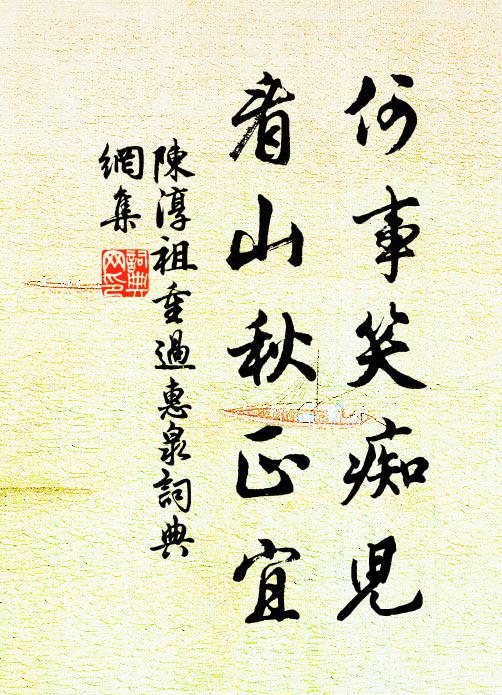 何事笑痴兒
看山秋正宜
陳淳祖重過惠泉詞典
網集
詞典
网印